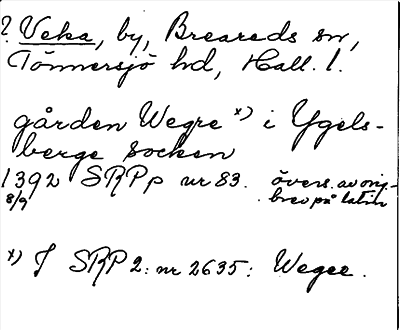 ? Veka, by, Breareds sn,
Tönnersjö hd, Hall. l.
gården Wegre x) i Ygels-
berge socken
1392 SRPp nr 83. övers. av orig.-
8/9 brev på latin
x) I SRP 2: nr 2635: Wegee.